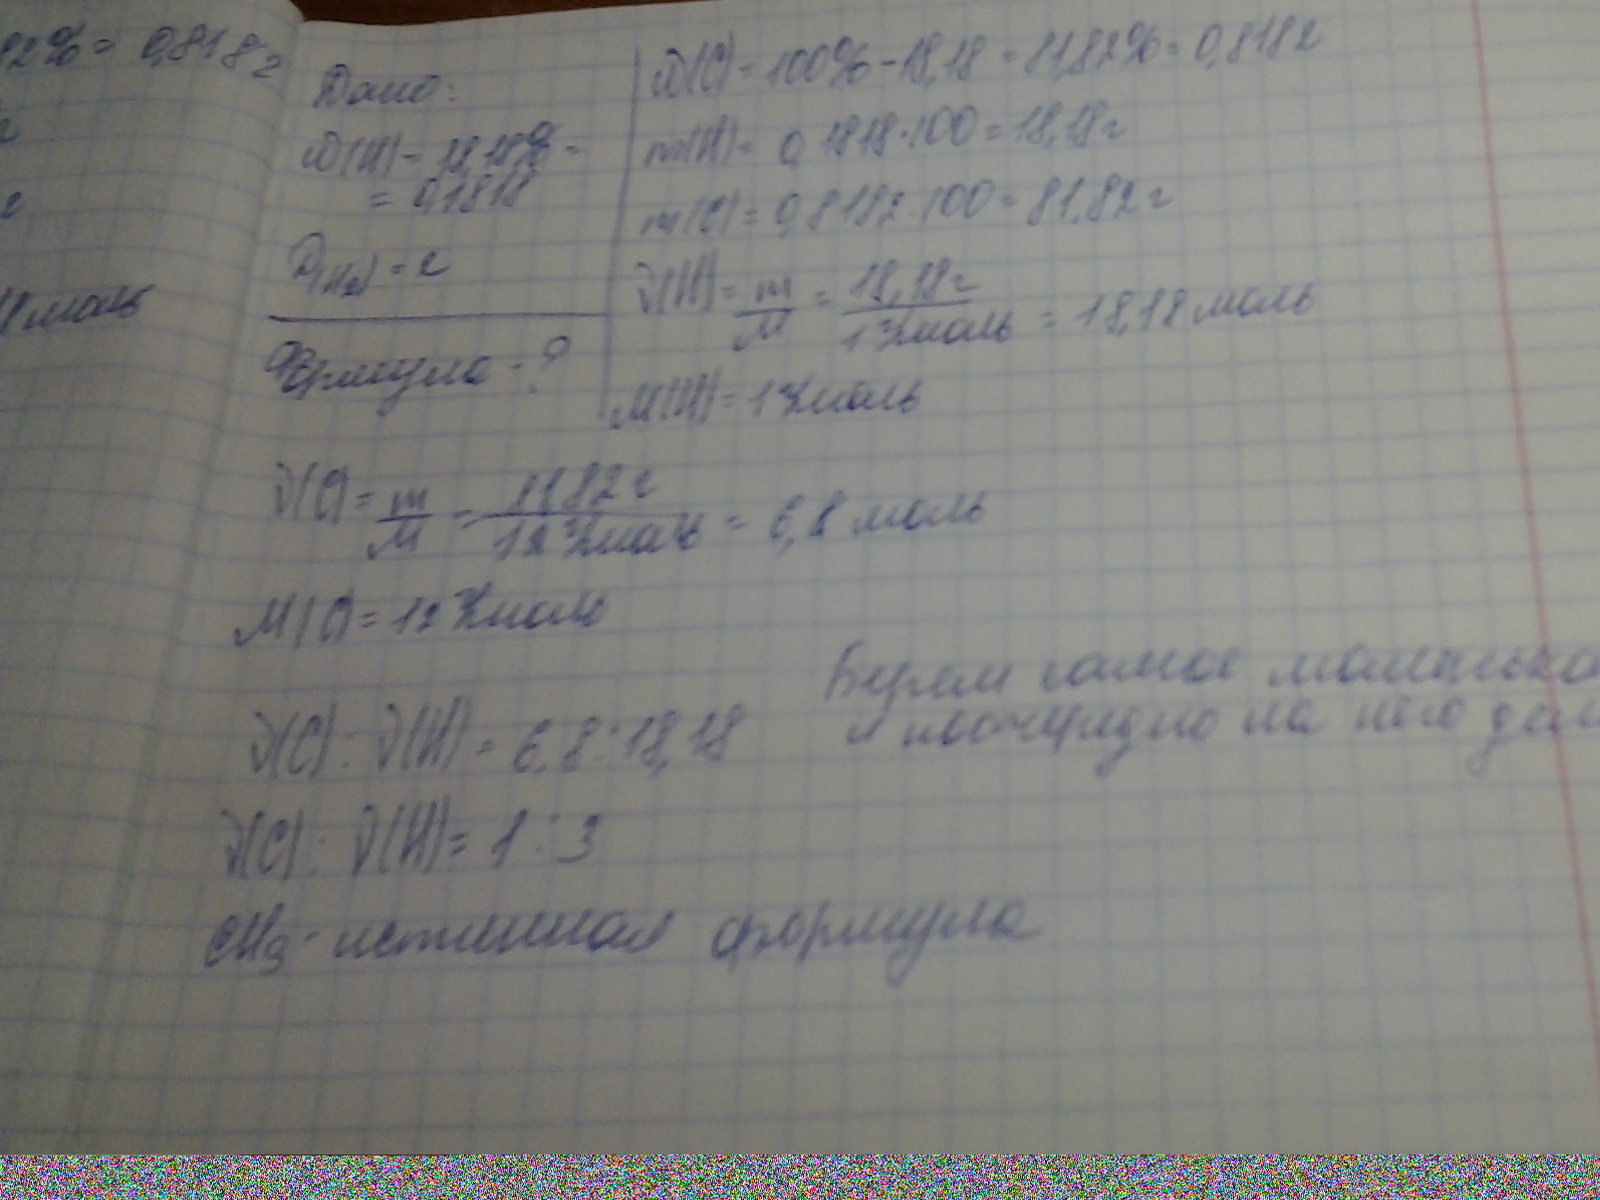 82% = 0,8182
моль
Дано:
ω(H) = 18,18% =
= 0,1818
D(H₂) = 2
Формула - ?
ω(C) = 100% - 18,18 = 81,82% = 0,8182
m(H) = 0,1818·100 = 18,18г
m(C) = 0,8182·100 = 81,82г
ν(H) = m/M = 18,18г/1г/моль = 18,18 моль
M(H) = 1г/моль
ν(C) = m/M = 81,82г/12г/моль = 6,8 моль
M(C) = 12г/моль
Берем самое маленько
и поочередно на него дел
ν(C) : ν(H) = 6,8 : 18,18
ν(C) : ν(H) = 1 : 3
CH₃ - истинная формула